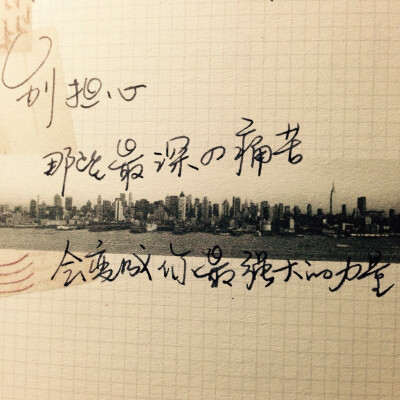 别担心
那些最深的痛苦
会变成你最强大的力量